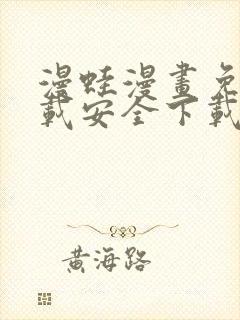 漫蛙漫畫免
載安全下載
黃海路